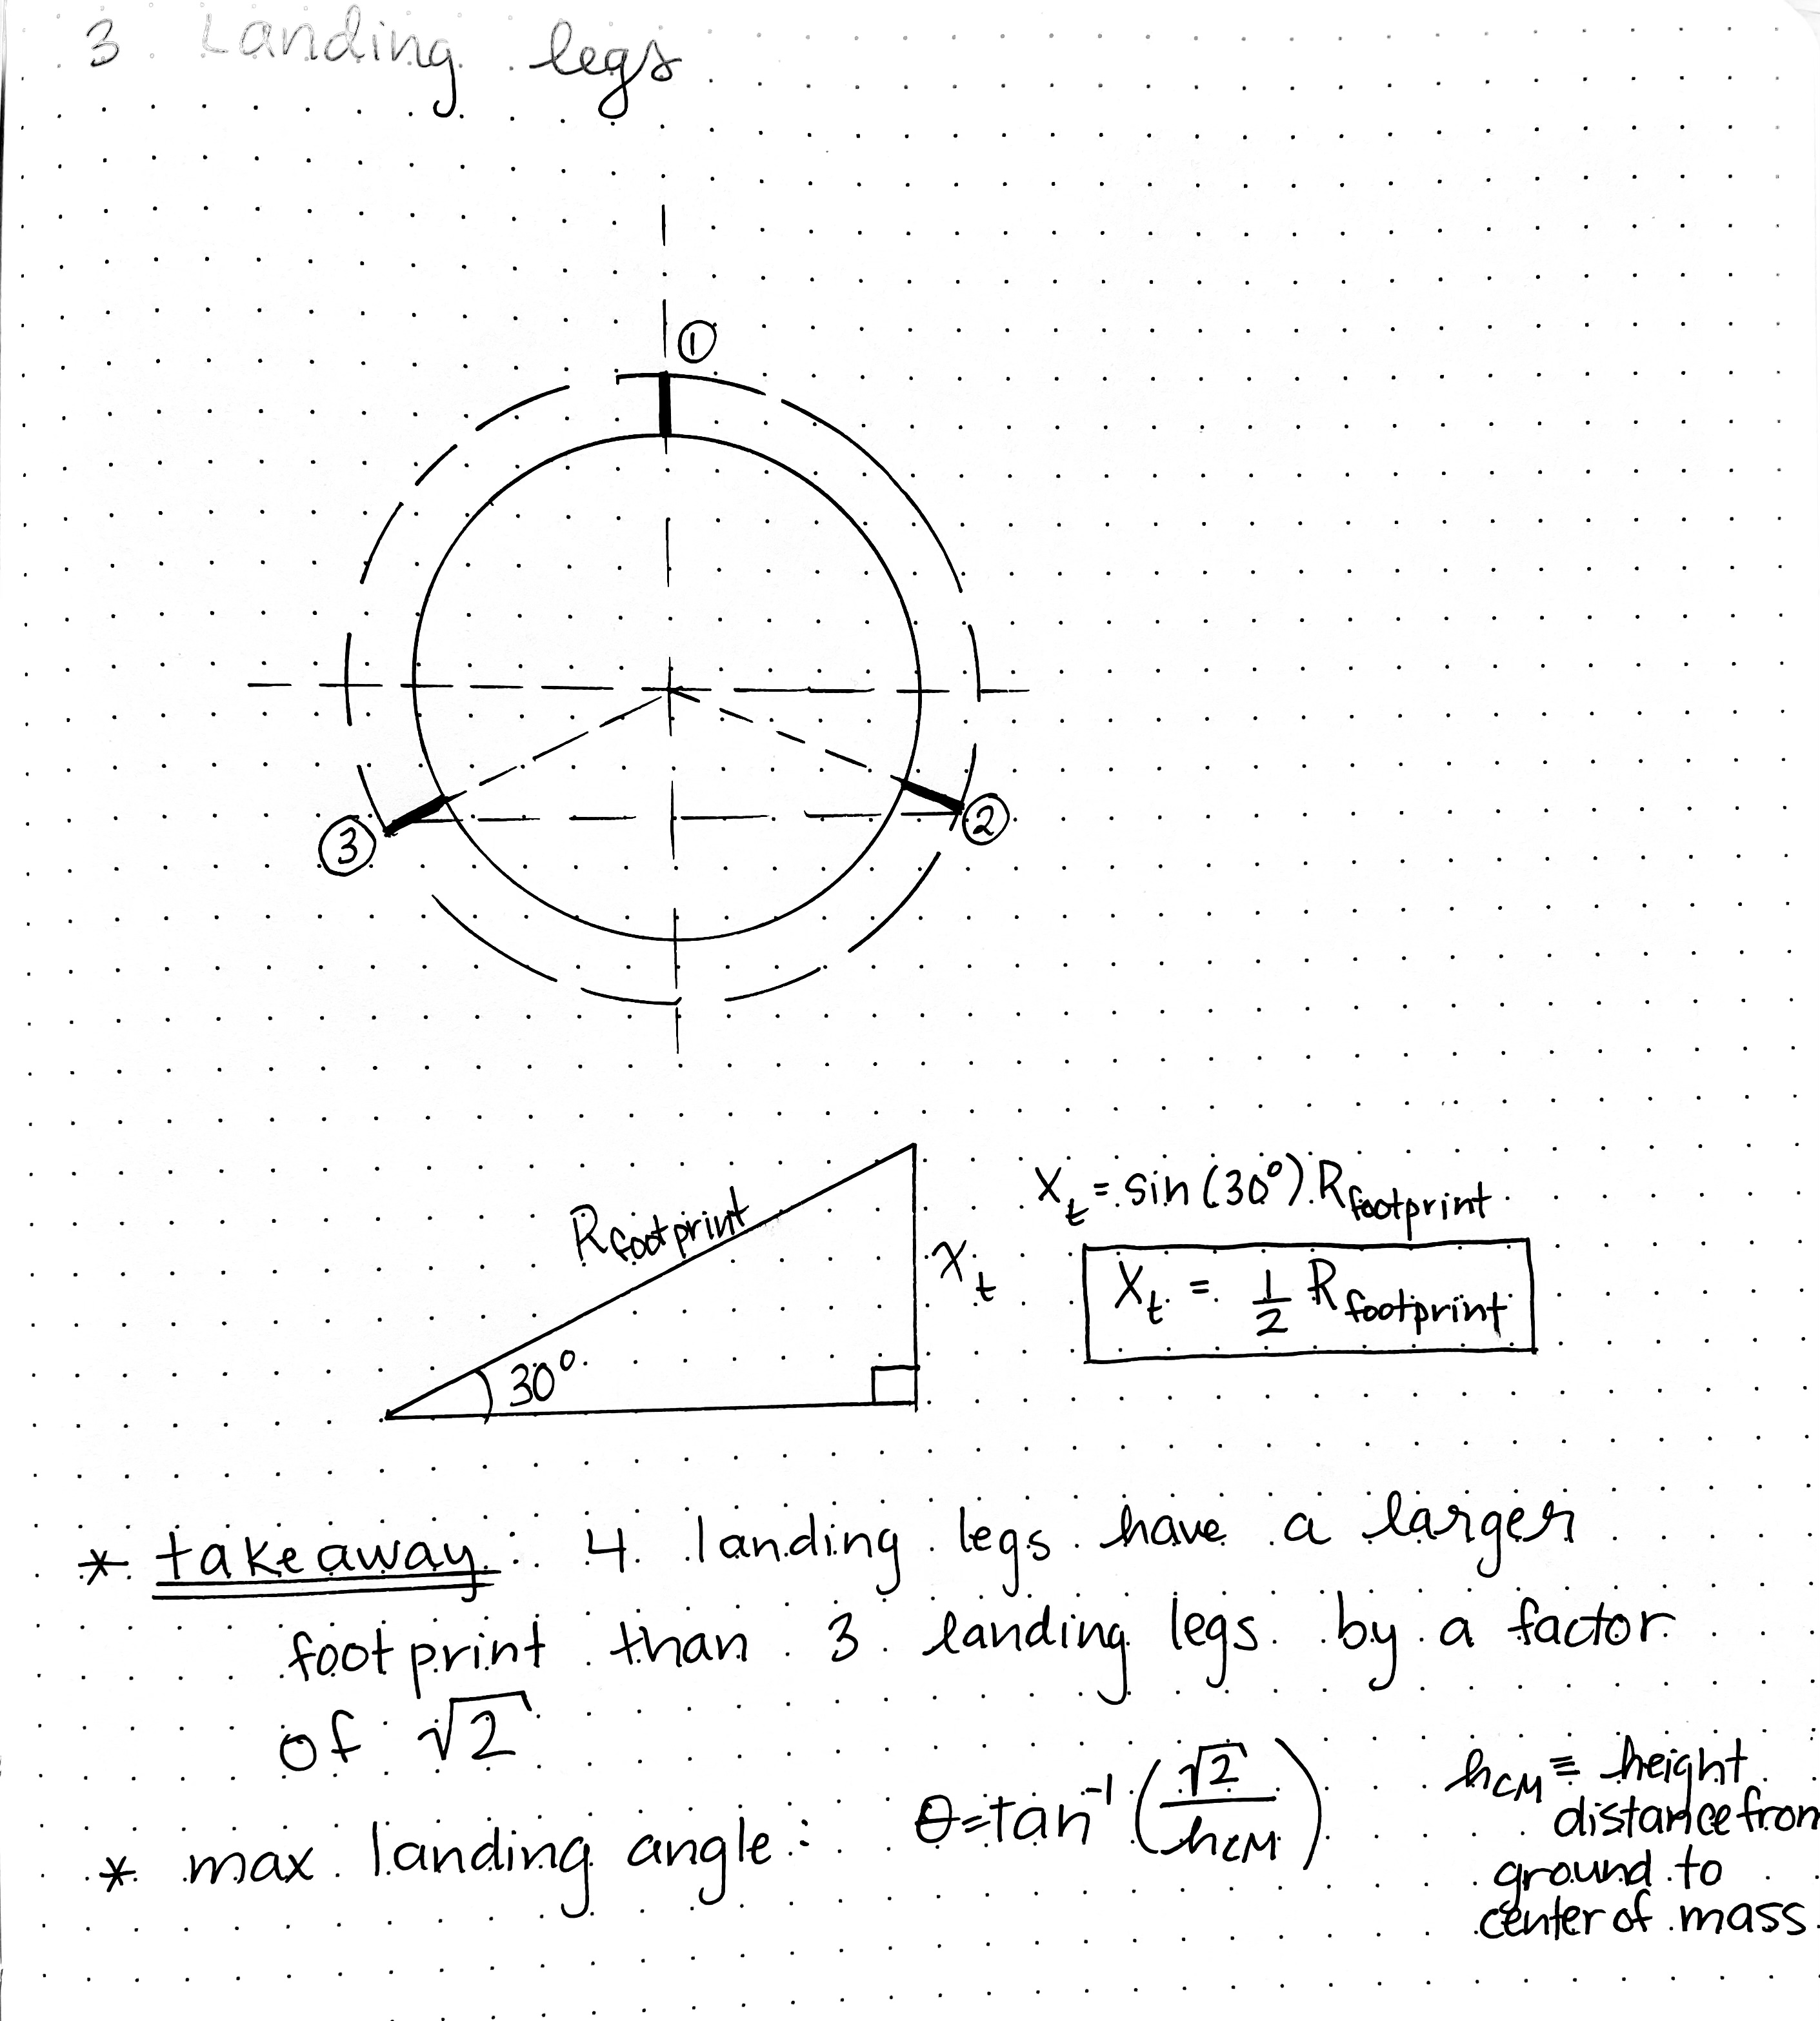 3 Landing legs
①
②
③
R footprint
x_t
30°
x_t = sin(30°) R footprint
x_t = 1/2 R footprint
* takeaway: 4 landing legs have a larger
footprint than 3 landing legs by a factor
of √2
* max landing angle: θ=tan⁻¹(√2/h_CM)
h_CM ≡ height
distance from
ground to
center of mass